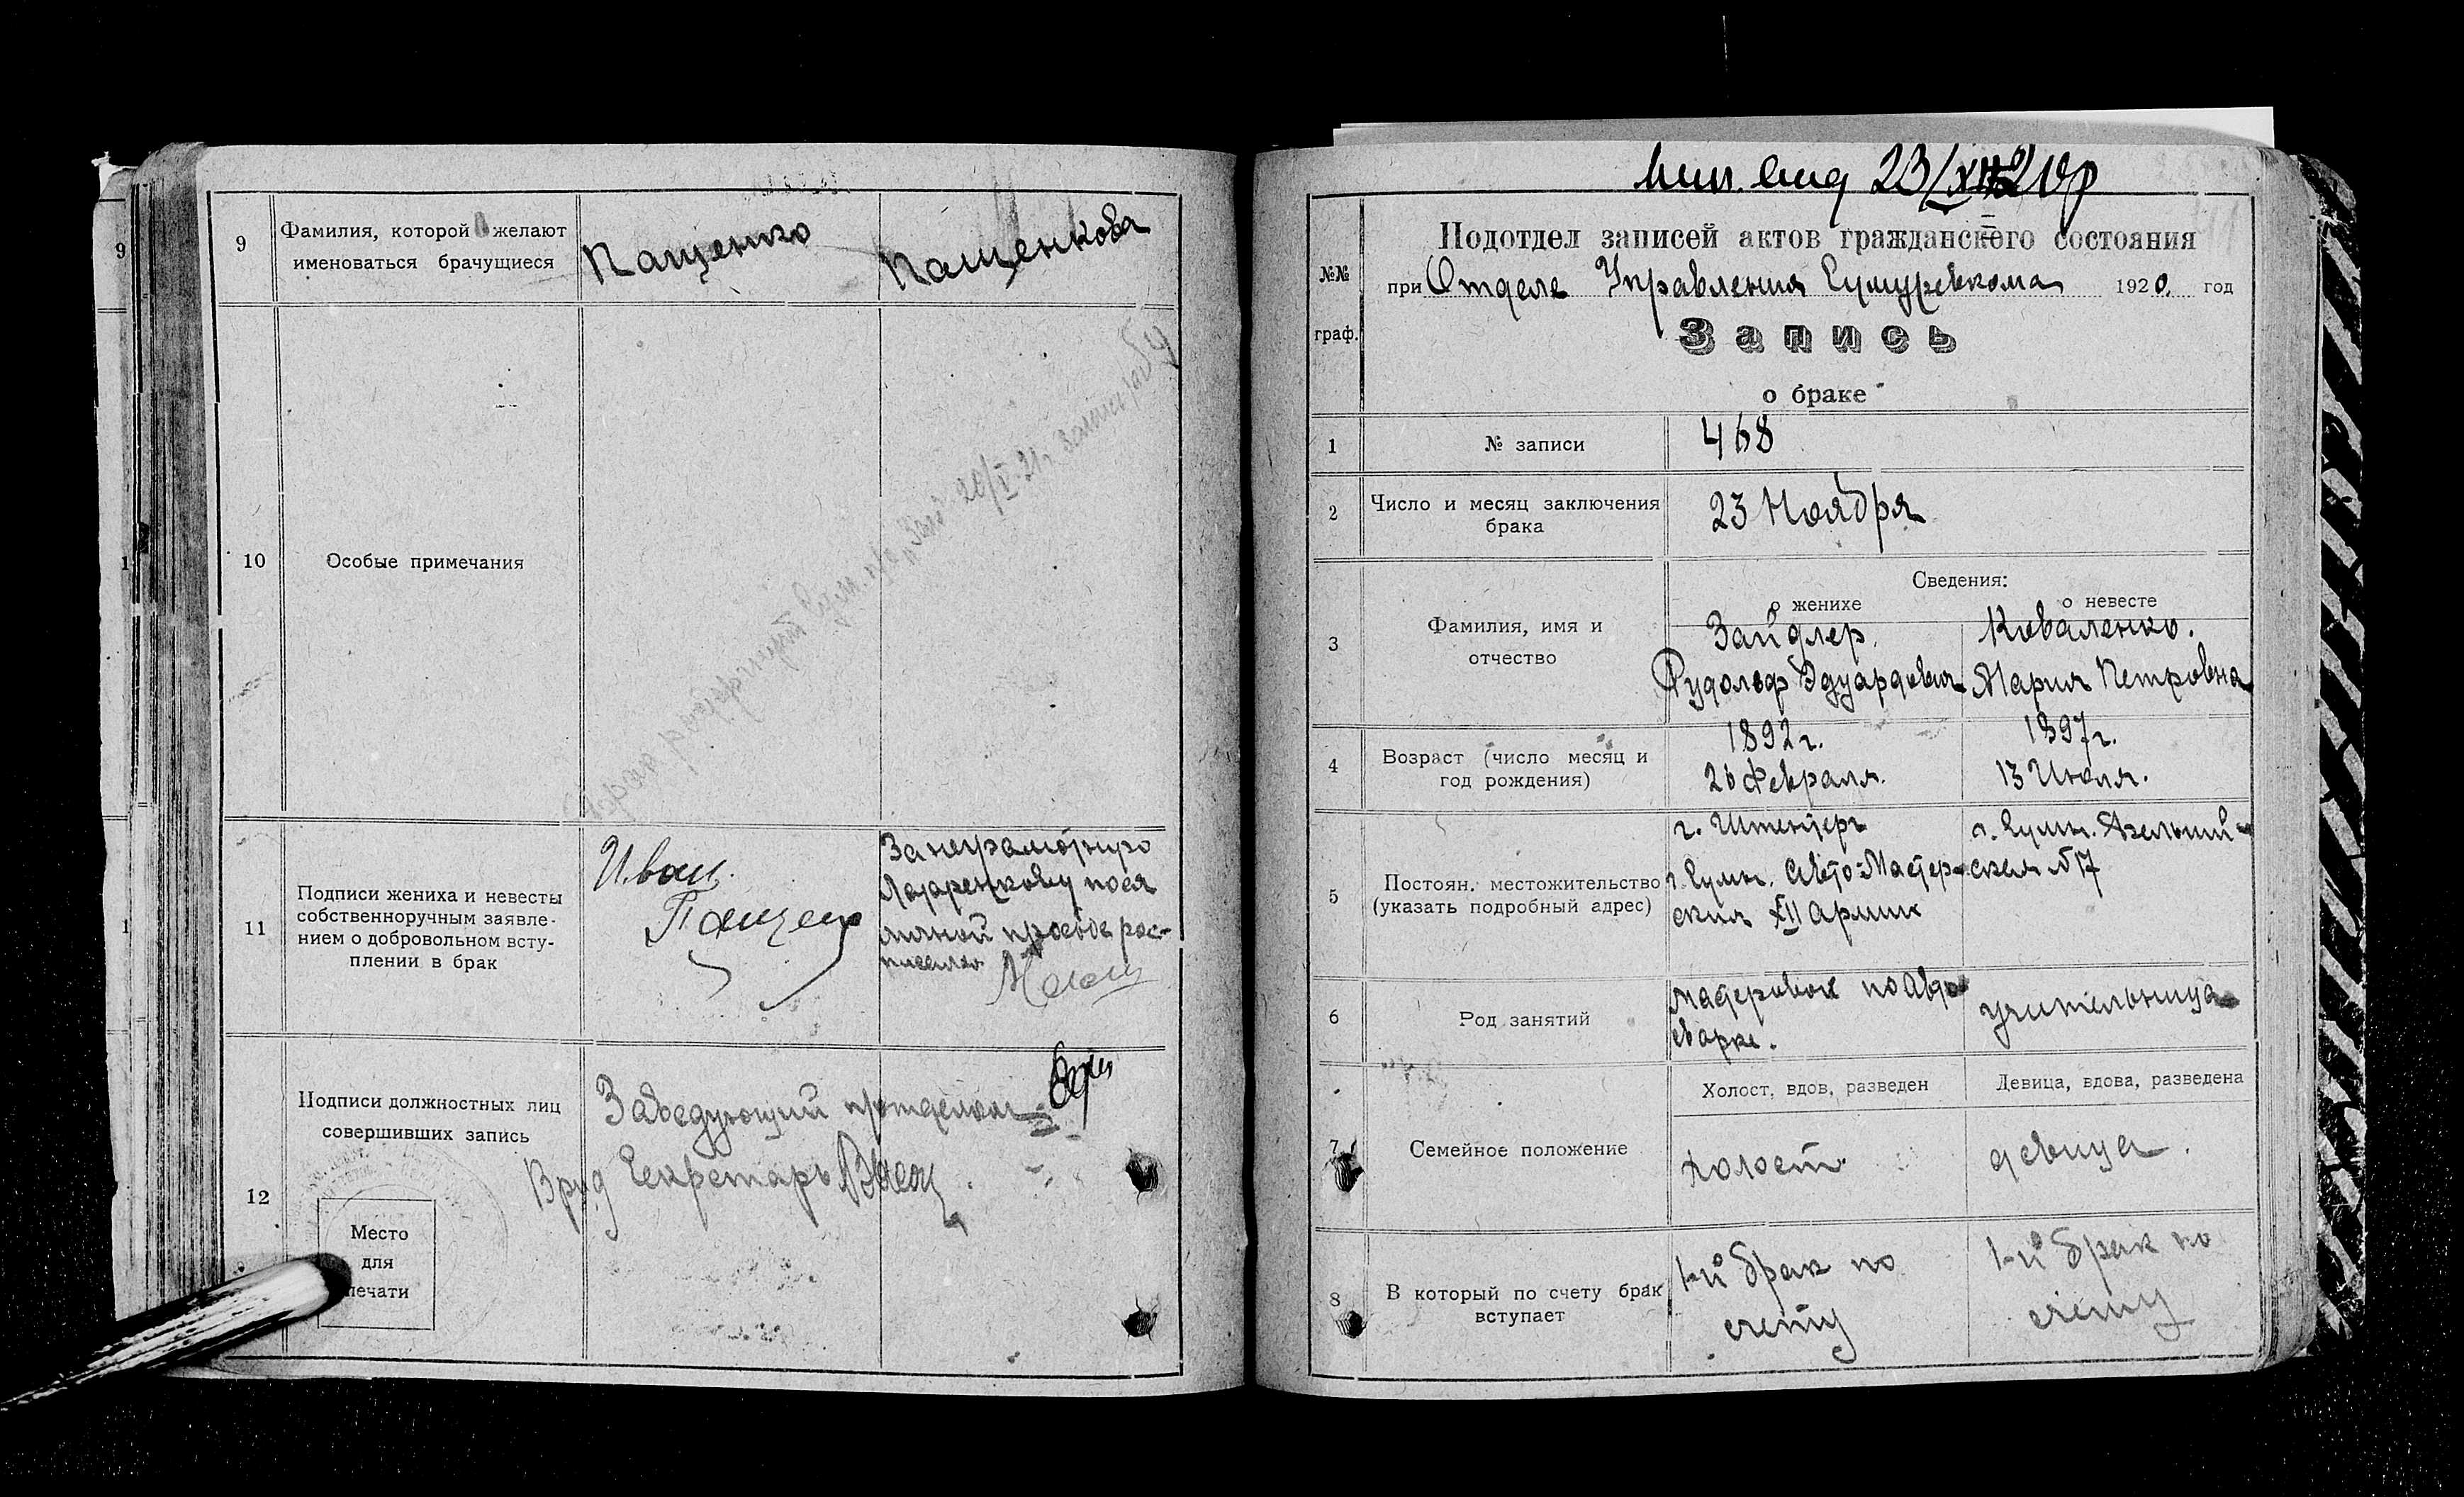 9
1
1
1
9
Фамилия, которой желают
именоваться брачущиеся
Пащенко
Пащенкова
10
Особые примечания
Брак расторгнут 20/I-21г.
11
Подписи жениха и невесты
собственноручным заявле-
нием о добровольном всту-
плении в брак
Иван
Пащенко
За неграмотную
Лазаренкову по ея
личной просьбе рос-
писался
12
Подписи должностных лиц
совершивших запись
Место
для
печати
Заведующий п/отделом
Врид Секретарь
23/XII
№№
граф.
Подотдел записей актов гражданского состояния
при Отделе Управления Сумуревкома 1920 год
Запись
о браке
1
№ записи
468
2
Число и месяц заключения
брака
23 Ноября
3
Фамилия, имя и
отчество
Сведения:
о женихе
о невесте
Зайдлер.
Рудольф Эдуардович
Коваленко.
Мария Петровна
4
Возраст (число месяц и
год рождения)
1892 г.
26 Февраля.
1897 г.
13 Июля.
5
Постоян. местожительство
(указать подробный адрес)
г. Сумы. Авто-Мастер-
ския XII Армии
г. Сумы.
ская № 17
6
Род занятий
по Авто
сварке.
учительница
7
Семейное положение
Холост, вдов, разведен
Девица, вдова, разведена
холост
девица.
8
В который по счету брак
вступает
1-й брак по
счету
1-й брак по
счету